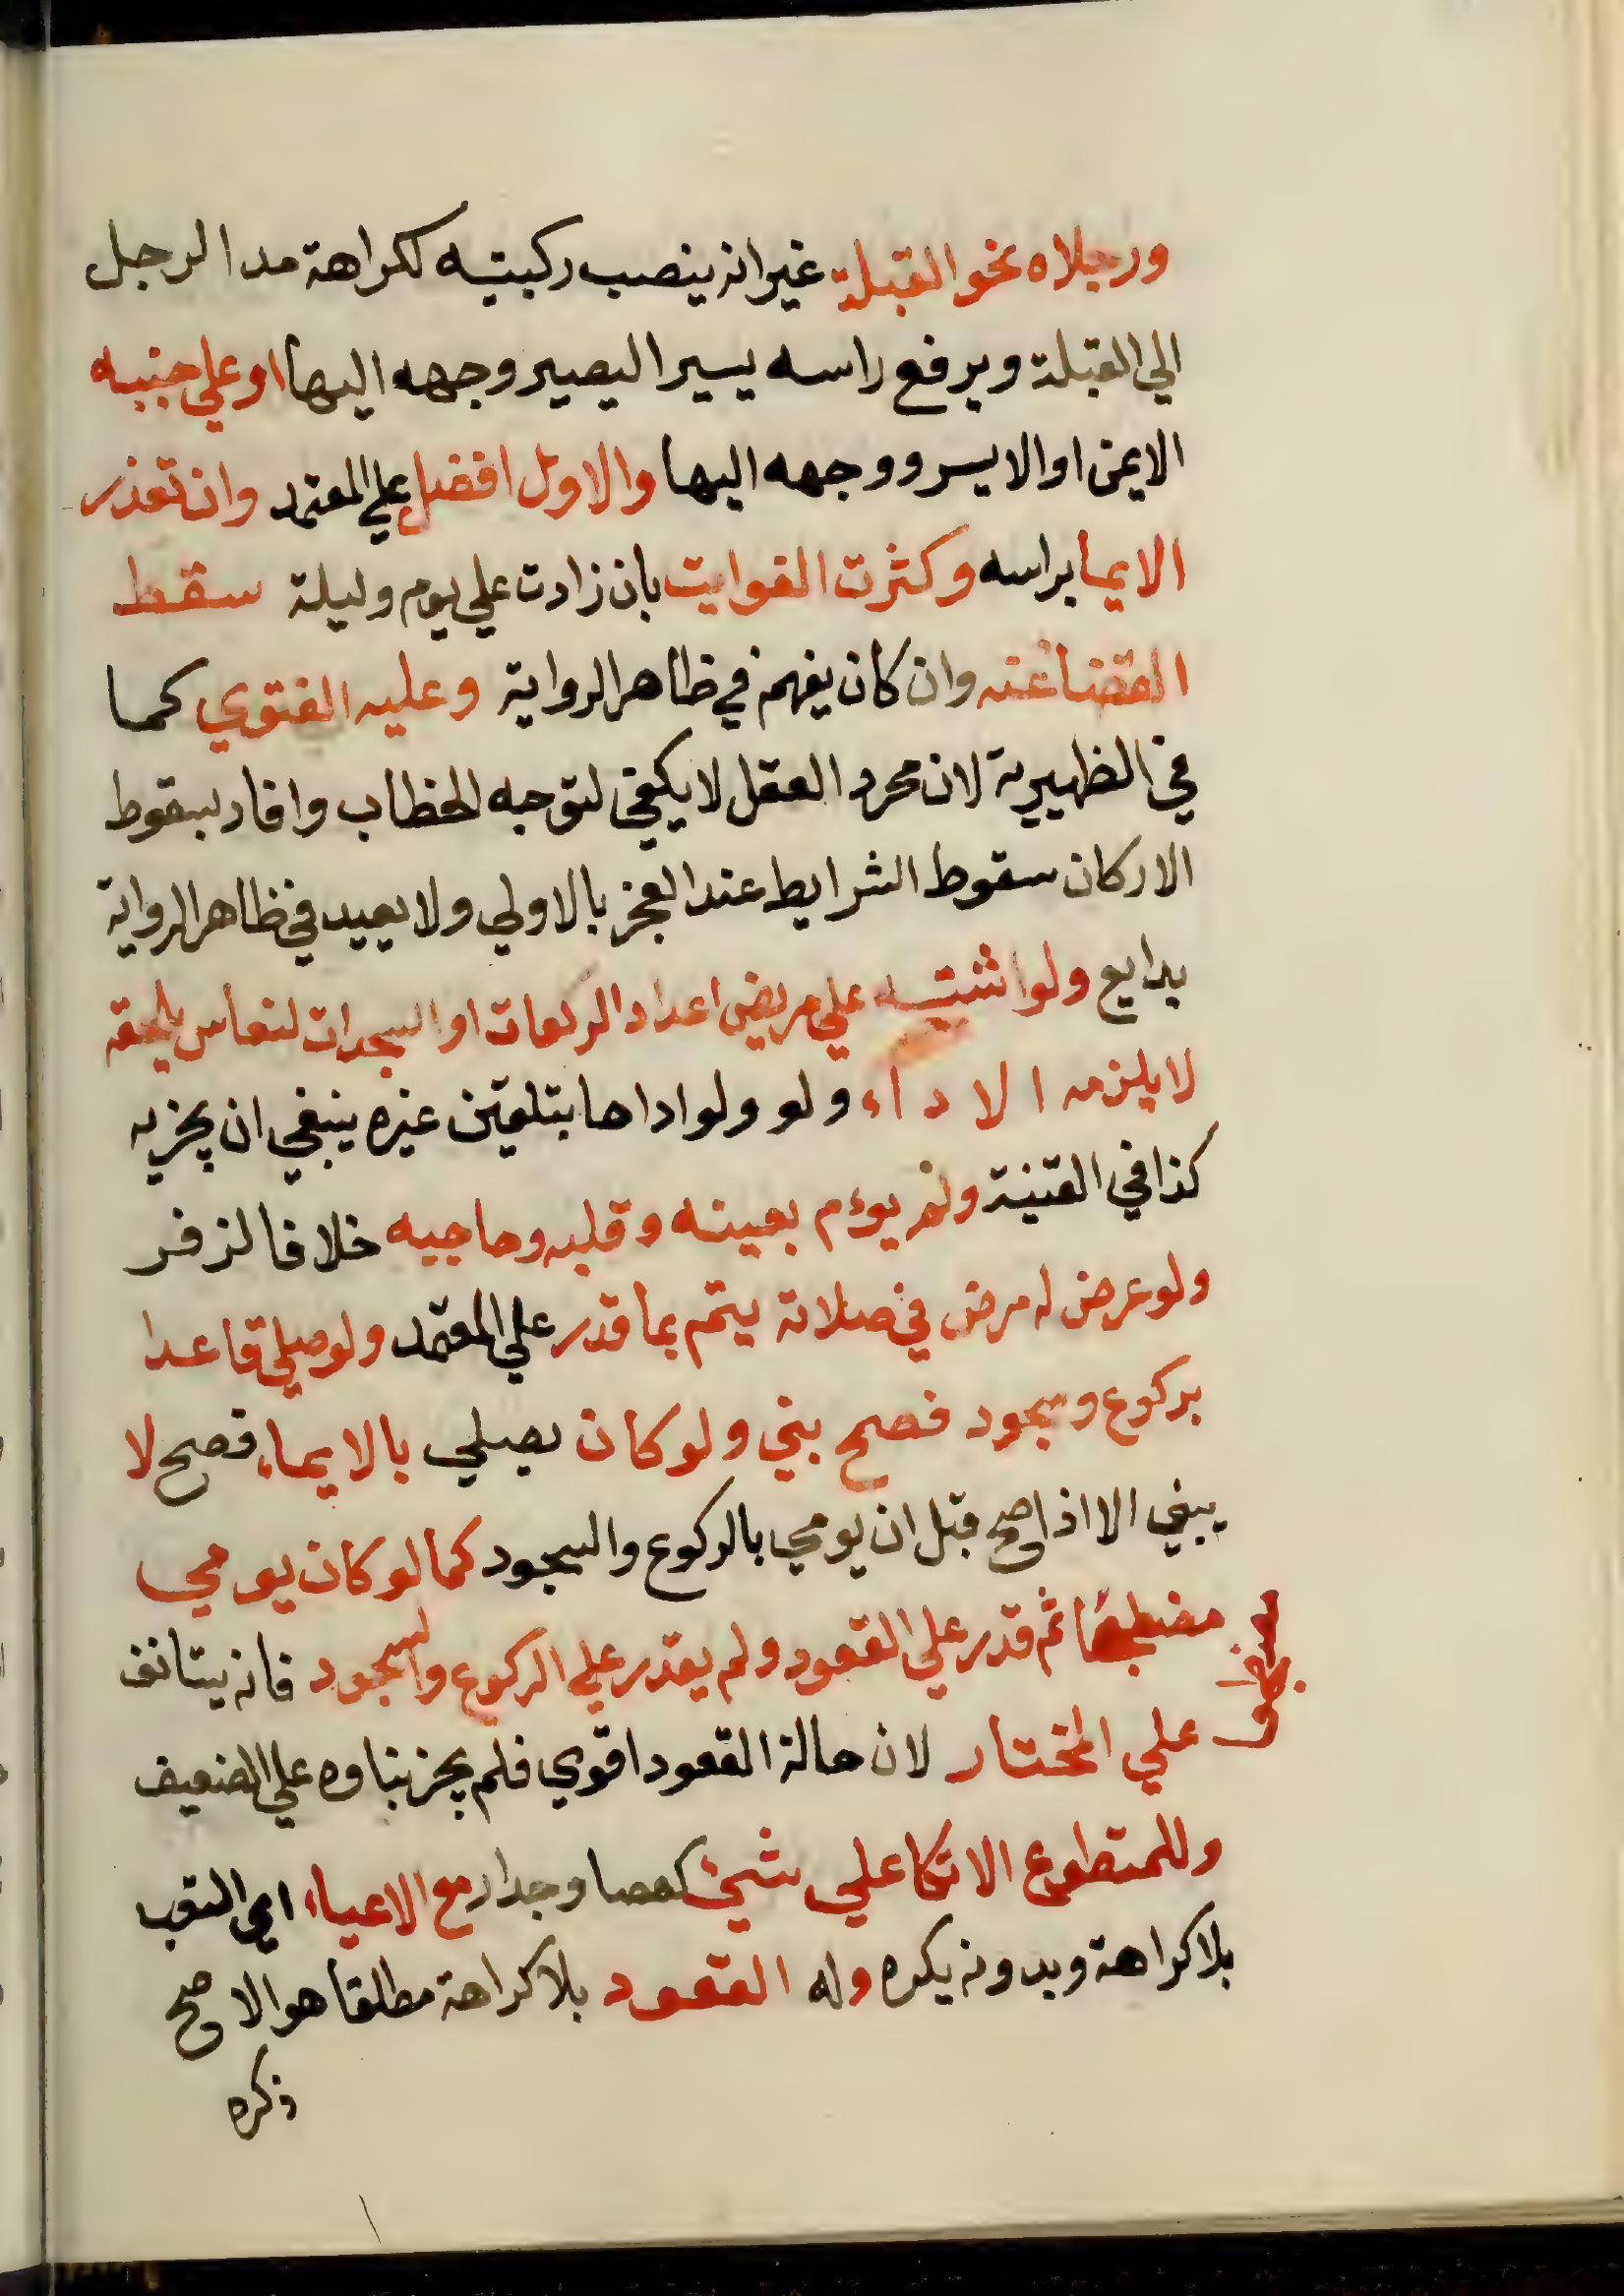 ورجلاه نحو القبلة غير انه ينصب ركبتيه لكراهة مد الرجل
الي القبلة ويرفع راسه يسيرا ليصير وجهه اليها او علي جنبه
الايمن او الايسر ووجهه اليها والاول افضل علي المعتمد وان تعذر
الايما براسه وكثرت الفوايت بان زادت علي يوم وليلة سقط
القضا عنه وان كان يفهم في ظاهر الرواية وعليه الفتوي كما
في الظهيرية لان مجرد العقل لا يكفي لتوجه الخطاب وافاد بسقوط
الاركان سقوط الشرايط عند العجز بالاولي ولا يعيد في ظاهر الرواية
بدايع ولو اشتبه علي مريض اعداد الركعات او السجدات لنعاس يلحقه
لا يلزمه الاداء ولو ولو اداها بتلقين غيره ينبغي ان يجزيه
كذا في القنية ولم يوءم بعينه وقلبه وحاجبه خلافا لزفر
ولو عرض له مرض في صلاته يتم بما قدر علي المعتمد ولو صلي قاعدا
بركوع وسجود فصح بني ولو كان يصلي بالايماء فصح لا
يبني الا اذا صح قبل ان يومي بالركوع والسجود كما لو كان يومي
مضطجعا ثم قدر علي القعود ولم يقدر علي الركوع والسجود فانه يستانف
علي المختار لان حالة القعود اقوي فلم يجز بناوه علي الضعيف
وللمتطوع الاتكا علي شيئ كعصا وجدار مع الاعياء اي التعب
بلا كراهة وبدونه يكره وله القعود بلا كراهة مطلقا هو الاصح
ذكره